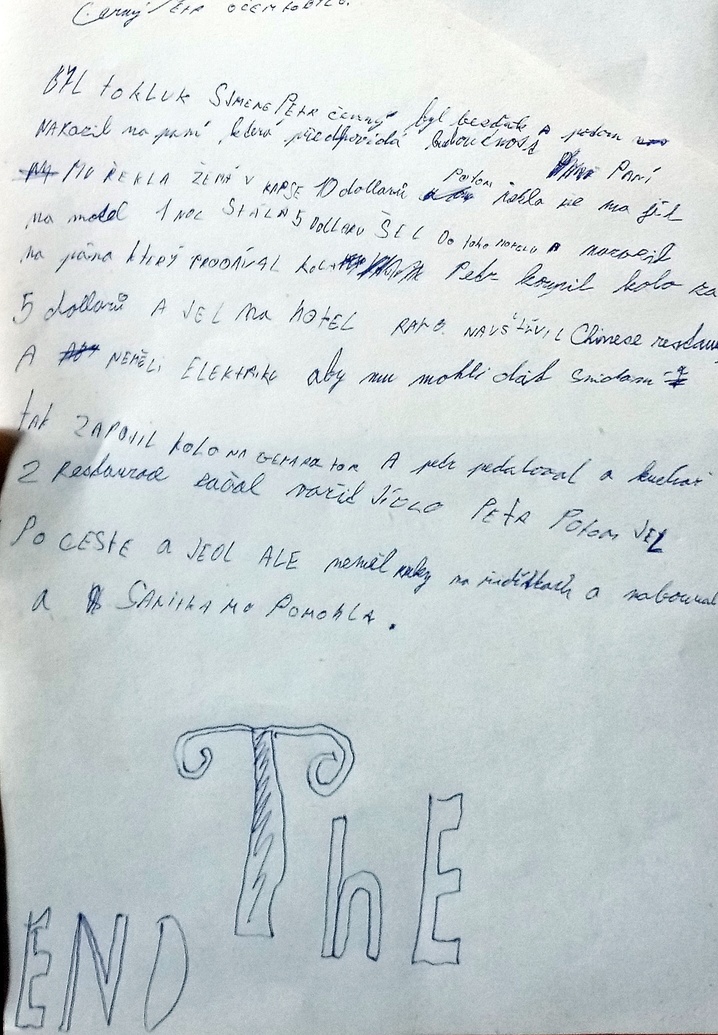 Černý Petr O ČEM TO BYLO.
BYL to KLUK JMENEM PETR černý byl bezdník A potom
NARAZIL na paní, která předpovídá budoucnost PANÍ
MU ŘEKLA ŽE MÁ V KAPSE 10 dollarů Potom řekla že má jít
na motel 1 NOC STÁLA 5 DOLLARU ŠEL DO toho HOTELU A narazil
na pána který PRODÁVAL KOLA Petr koupil kolo za
5 dollarů A JEL na HOTEL RANO NAVŠTÍVIL Chinese restau
A NEMĚLI ELEKTRIKU aby mu mohli dát snídani
tAK ZAPOJIL KOLO NA GENARATOR A petr pedaloval a kuchař
Z Restaurace začal vařit JÍDLO PETR Potom JEL
PO CESTE a JEDL ALE neměl ruky na řidítkach a naboural
a SANITKA MU POMOHLA.
The
END